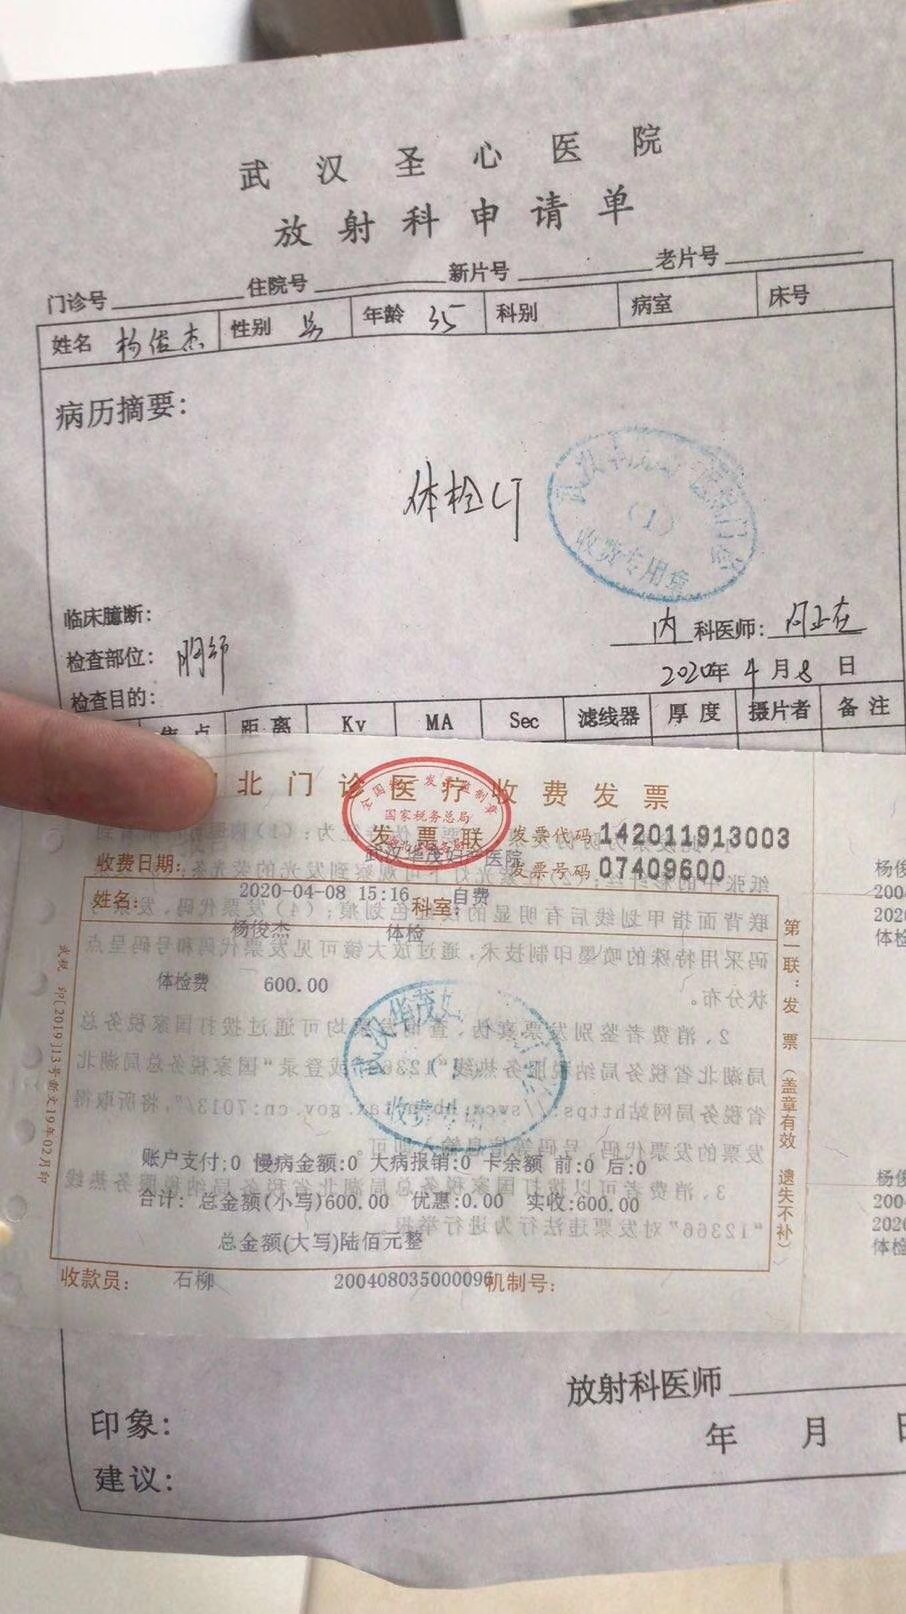 武汉圣心医院
放射科申请单
门诊号 住院号 新片号 老片号
姓名 杨俊杰 性别 男 年龄 35 科别 病室 床号
病历摘要:
体检CT
(1)
收费专用章
临床臆断:
内 科医师:
检查部位: 胸部
2020年 4 月 8 日
检查目的:
焦点 距离 Kv MA Sec 滤线器 厚度 摄片者 备注
北门诊医疗收费发票
国家税务总局
发票联
发票代码 142011913003
武汉华茂妇产医院
发票号码 07409600
收费日期:
2020-04-08 15:16 自费
姓名: 科室:
杨俊杰 体检
体检费 600.00
账户支付:0 慢病金额:0 大病报销:0 卡余额 前:0 后:0
合计: 总金额(小写)600.00 优惠:0.00 实收:600.00
总金额(大写)陆佰元整
收款员: 石柳 2004080350000096 机制号:
第一联:发票(盖章有效 遗失不补)
放射科医师
印象:
年 月 日
建议: